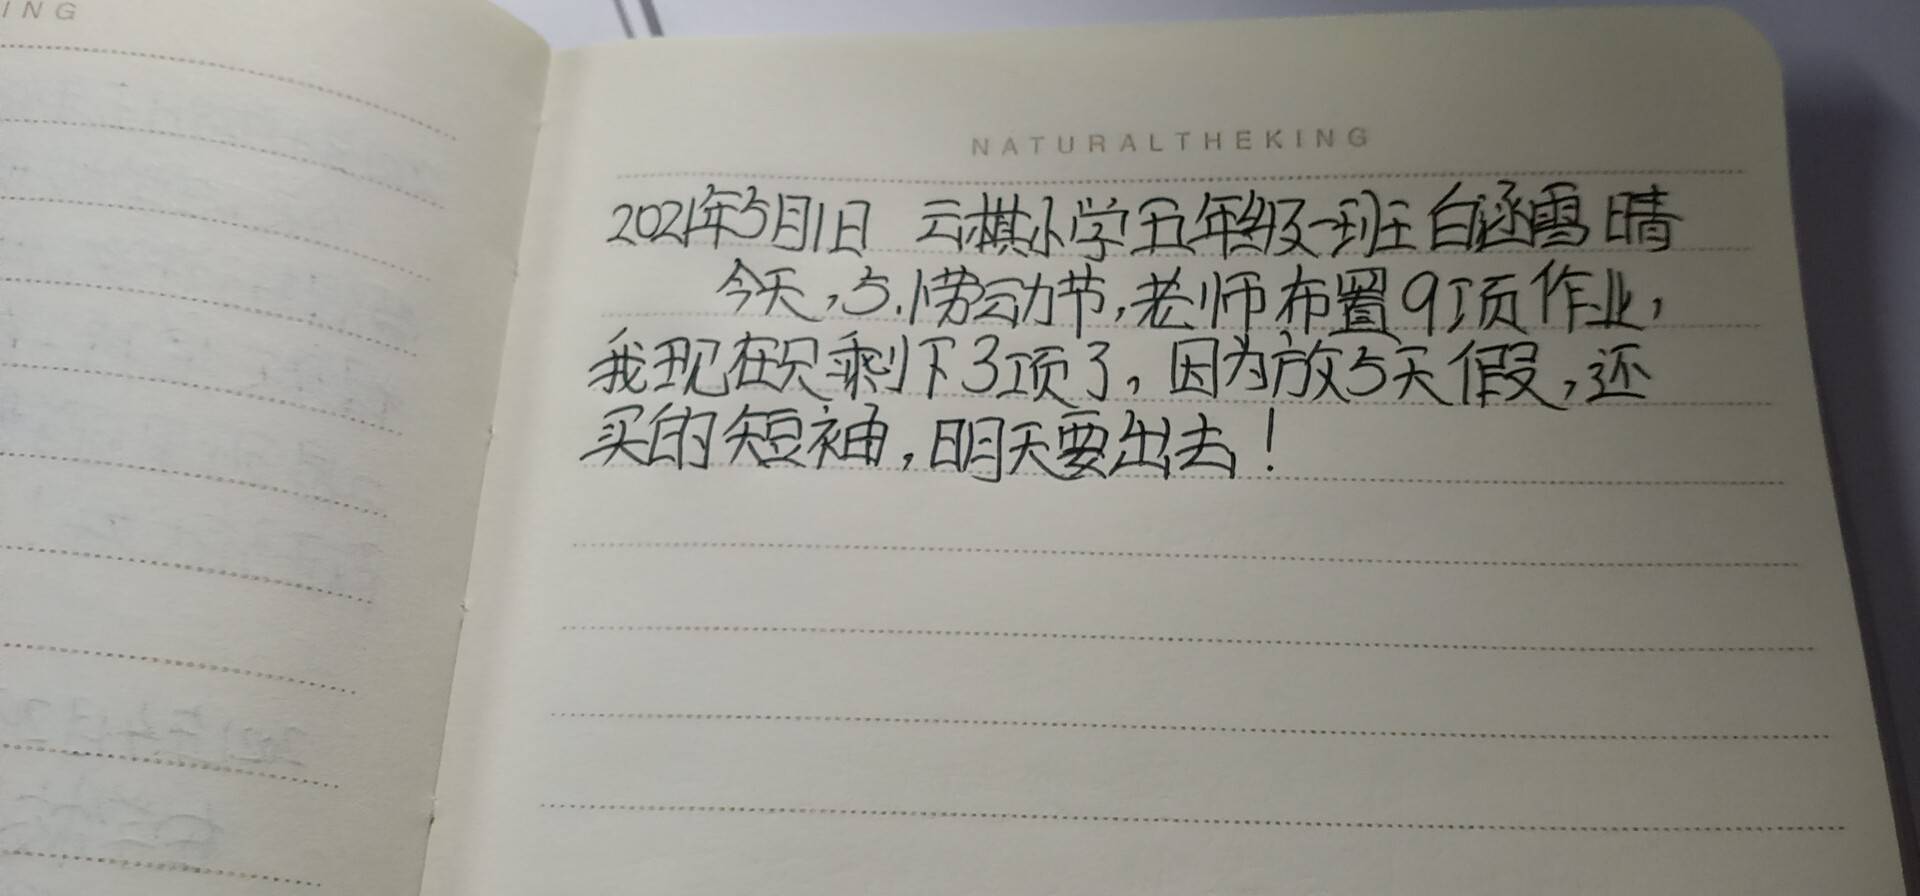 ING
NATURALTHEKING
2021年5月1日 云棋小学五年级一班王白涵雪晴
今天，5.1劳动节，老师布置9项作业，
我现在只剩下3项了，因为放5天假，还
买的短袖，明天要出去！